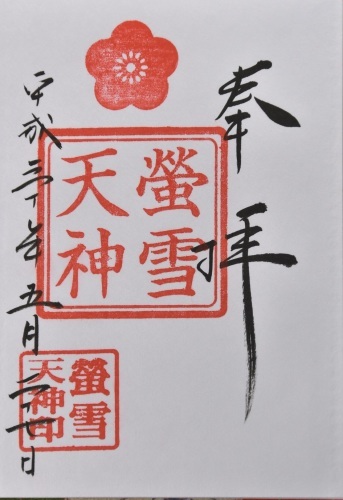 奉拝
螢雪
天神
平成三十年五月二十七日
螢雪
天神印